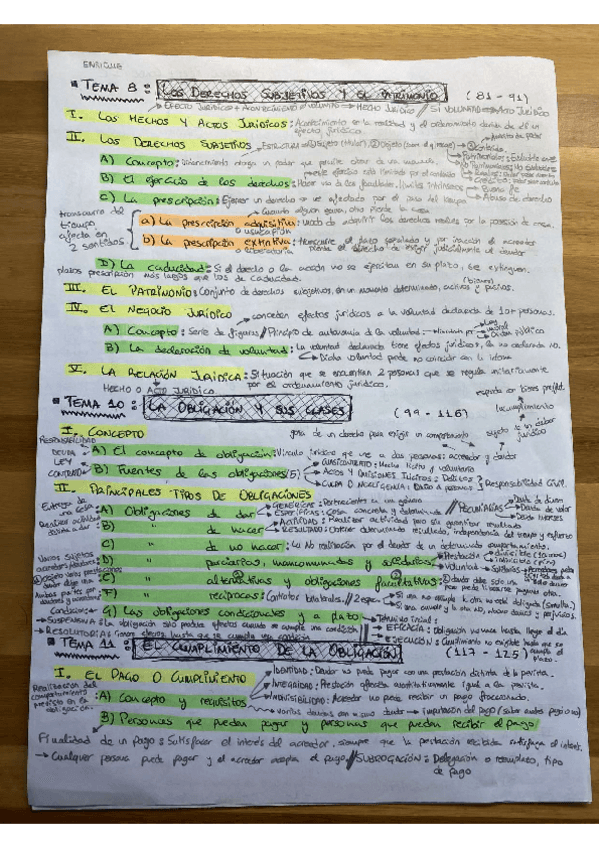 ENRIQUE
TEMA 8: LOS DERECHOS SUBJETIVOS Y EL PATRIMONIO (81 - 91)
EFECTO JURÍDICO + ACONTECIMIENTO VOLUNTAD → HECHO JURÍDICO / SI VOLUNTAD → ACTO JURÍDICO
I. LOS HECHOS Y ACTOS JURÍDICOS: Acontecimiento de la realidad y el ordenamiento deriva de él un
efecto jurídico.
II. LOS DERECHOS SUBJETIVOS → ESTRUCTURA → ① Sujeto (titular), ② Objeto
A) Concepto: poder que permite obrar de una manera.
B) El ejercicio de los derechos: Hacer uso de las facultades, límites intrínsecos → Buena fe
→ Abuso de derecho
C) La prescripción: Ejercer un derecho se ve afectado por el paso del tiempo
transcurso del
tiempo,
afecta en
2 sentidos
Cuando alguien gana, otro pierde la cosa
a) La prescripción adquisitiva: Modo de adquirir los derechos reales por la posesión de cosa.
o usucapión
b) La prescripción extintiva: Transcurre el plazo señalado y por inacción el acreedor
o liberatoria
pierde el derecho de exigir judicialmente al deudor
D) La caducidad: Si el derecho o la acción no se ejercitan en su plazo, se extinguen.
plazos prescripción más largos que los de caducidad.
III. EL PATRIMONIO: Conjunto de derechos subjetivos, en un momento determinado, activos y pasivos.
IV. EL NEGOCIO JURÍDICO → conceden efectos jurídicos a la voluntad declarada de 1 o + personas.
A) Concepto: Serie de figuras // Principio de autonomía de la voluntad: → Ley
moral
Orden público
B) La declaración de voluntad: La voluntad declarada tiene efectos jurídicos, la no declarada NO.
→ Dicha voluntad puede no coincidir con la interna
V. LA RELACIÓN JURÍDICA: Situación que se encuentran 2 personas que se regula unitariamente
HECHO O ACTO JURÍDICO por el ordenamiento jurídico.
TEMA 10: LA OBLIGACIÓN Y SUS CLASES (99 - 116)
incumplimiento
I. CONCEPTO goza de un derecho para exigir un comportamiento sujeto a un deber
jurídico
RESPONSABILIDAD
DEUDA
LEY
CONTRATO
A) El concepto de obligación: Vínculo jurídico que ve a dos personas: acreedor y deudor
B) Fuentes de las obligaciones (5) → CUASICONTRATO: Hecho lícito y voluntario
→ ACTOS Y OMISIONES ILÍCITOS: Delictivos
→ CULPA O NEGLIGENCIA: DAÑO A PERSONAS } Responsabilidad Civil.
II. PRINCIPALES TIPOS DE OBLIGACIONES
Entrega de
una cosa
A) Obligaciones de dar → GENÉRICAS: Pertenecientes a un género
→ ESPECÍFICAS: Cosa concreta y determinada // PECUNIARIAS → Deuda de dinero
→ Deuda de valor
→ Deuda intereses
B) " de hacer → ACTIVIDAD: Realizar actividad pero sin garantizar resultado
→ RESULTADO: Obtener determinado resultado, independiente del tiempo y esfuerzo
C) " de no hacer: La NO realización por el deudor de un determinado comportamiento.
Varios sujetos
D) " parciarias, mancomunadas y solidarias
E) " alternativas y obligaciones facultativas: ② deudor debe solo una
pero puede librarse pagando otra.
F) " recíprocas: Contratos bilaterales // 2 espec. → Si una no cumple la otra no está obligada (simultá.)
→ Si una cumple y la otra NO, abona daños y perjuicios.
G) Las obligaciones condicionales y a plazo → TÉRMINO INICIAL:
→ SUSPENSIVA: La obligación solo produce efectos cuando se cumple una condición → EFICACIA: Obligación no nace hasta llegar el día
→ RESOLUTORIA: Tienen efectos hasta que se cumple una condición → EJECUCIÓN: Cumplimiento no exigible hasta que se
cumpla el plazo.
TEMA 11: EL CUMPLIMIENTO DE LA OBLIGACIÓN (117 - 125)
I. EL PAGO O CUMPLIMIENTO → IDENTIDAD: Deudor no puede pagar con una prestación distinta de la prevista.
Realización del
comportamiento
previsto en la
obligación.
→ INTEGRIDAD: Prestación ofrecida cuantitativamente igual a la prevista.
A) Concepto y requisitos → INDIVISIBILIDAD: Acreedor no puede recibir un pago fraccionado.
→ varias deudas con mismo deudor → imputación del pago (saber cuál pagó o no)
B) Personas que pueden pagar y personas que pueden recibir el pago
Finalidad de un pago: Satisfacer el interés del acreedor, siempre que la prestación recibida satisfaga el interés.
→ Cualquier persona puede pagar y el acreedor acepta el pago. // SUBROGACIÓN: Delegación o reemplazo, tipo
de pago